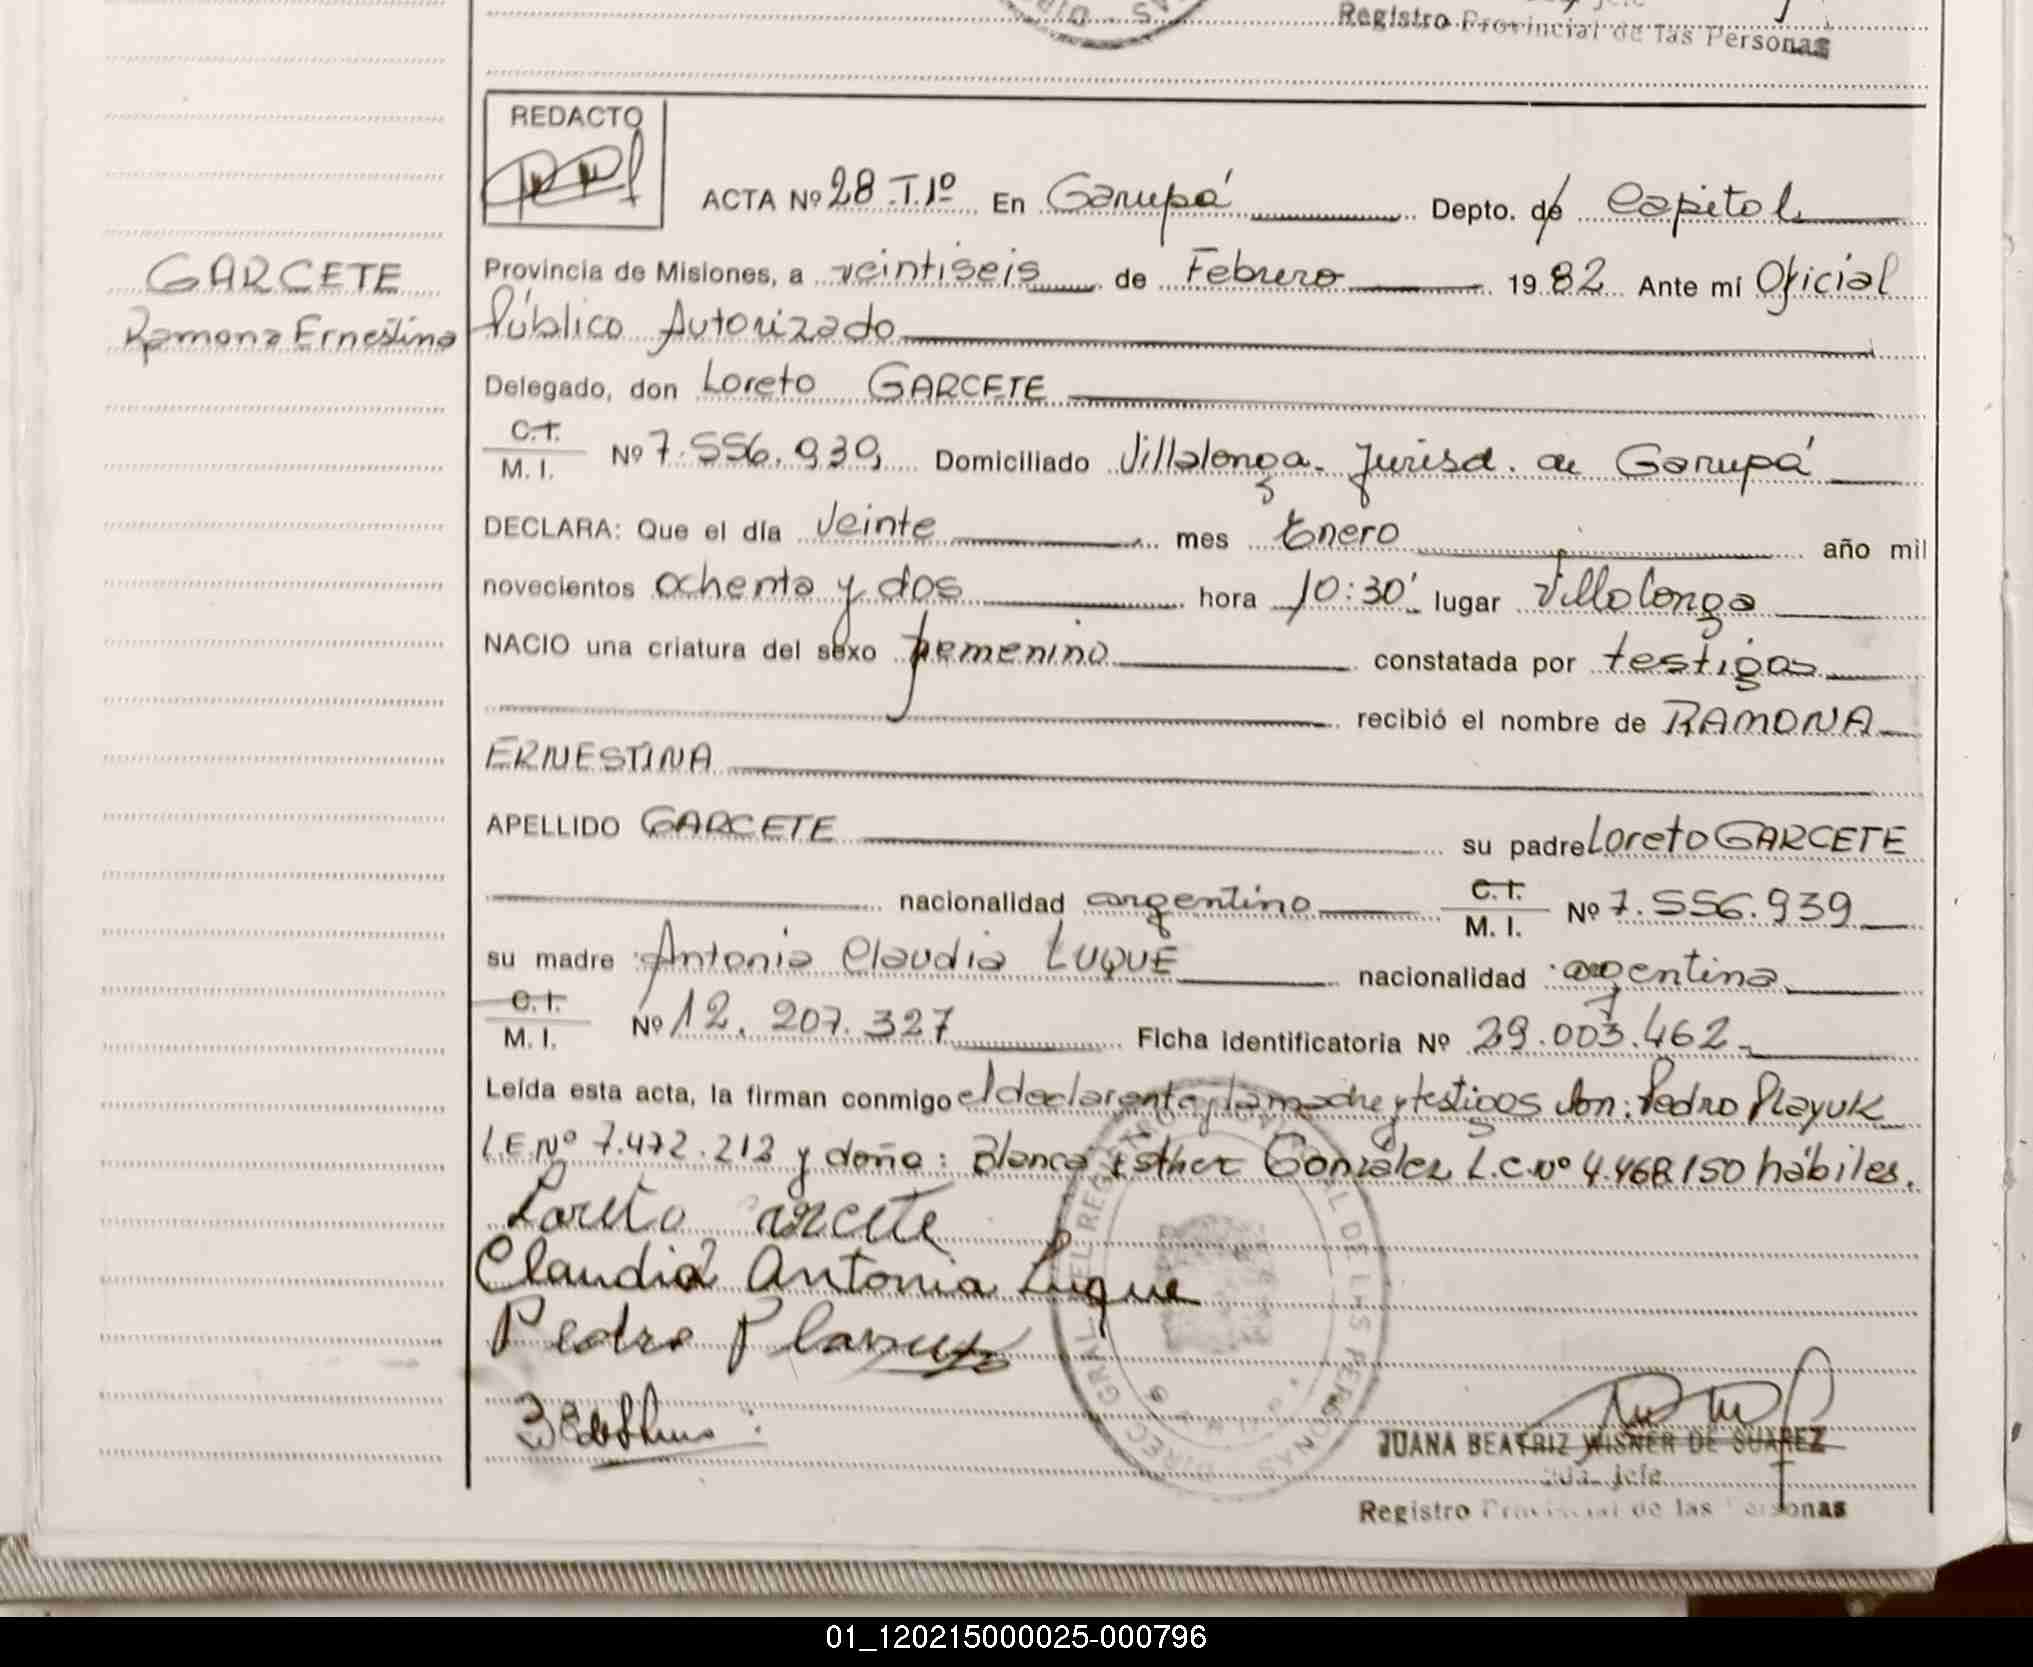 Registro Provincial de las Personas
REDACTO
ACTA Nº 28 T.1º En Garupá Depto. de Capital
GARCETE
Ramona Ernestina
Provincia de Misiones, a veintiseis de Febrero 1982 Ante mí Oficial
Público Autorizado
Delegado, don Loreto GARCETE
C.I.
M. I. Nº 7.556.939, Domiciliado Villalonga - Jurisd. de Garupá
DECLARA: Que el día Veinte mes Enero año mil
novecientos ochenta y dos hora 10:30' lugar Villalonga
NACIO una criatura del sexo femenino constatada por testigos
recibió el nombre de RAMONA
ERNESTINA
APELLIDO GARCETE su padre Loreto GARCETE
nacionalidad argentino C.I. M. I. Nº 7.556.939
su madre Antonia Claudia LUQUE nacionalidad argentina
C.I.
M. I. Nº 12.207.327 Ficha identificatoria Nº 29.003.462
Leída esta acta, la firman conmigo el declarante y la madre y testigos don: Pedro Playuk
L.E.Nº 7.472.212 y doña: Blanca Esther González L.C.Nº 4.468.150 hábiles.
Loreto arcete
Claudia Antonia Luque
Pedro
DIREC. GRAL. DEL REGISTRO PROVINCIAL DE LAS PERSONAS
JUANA BEATRIZ WISNER DE SUAREZ
2da. Jefe
Registro Provincial de las Personas
01_120215000025-000796